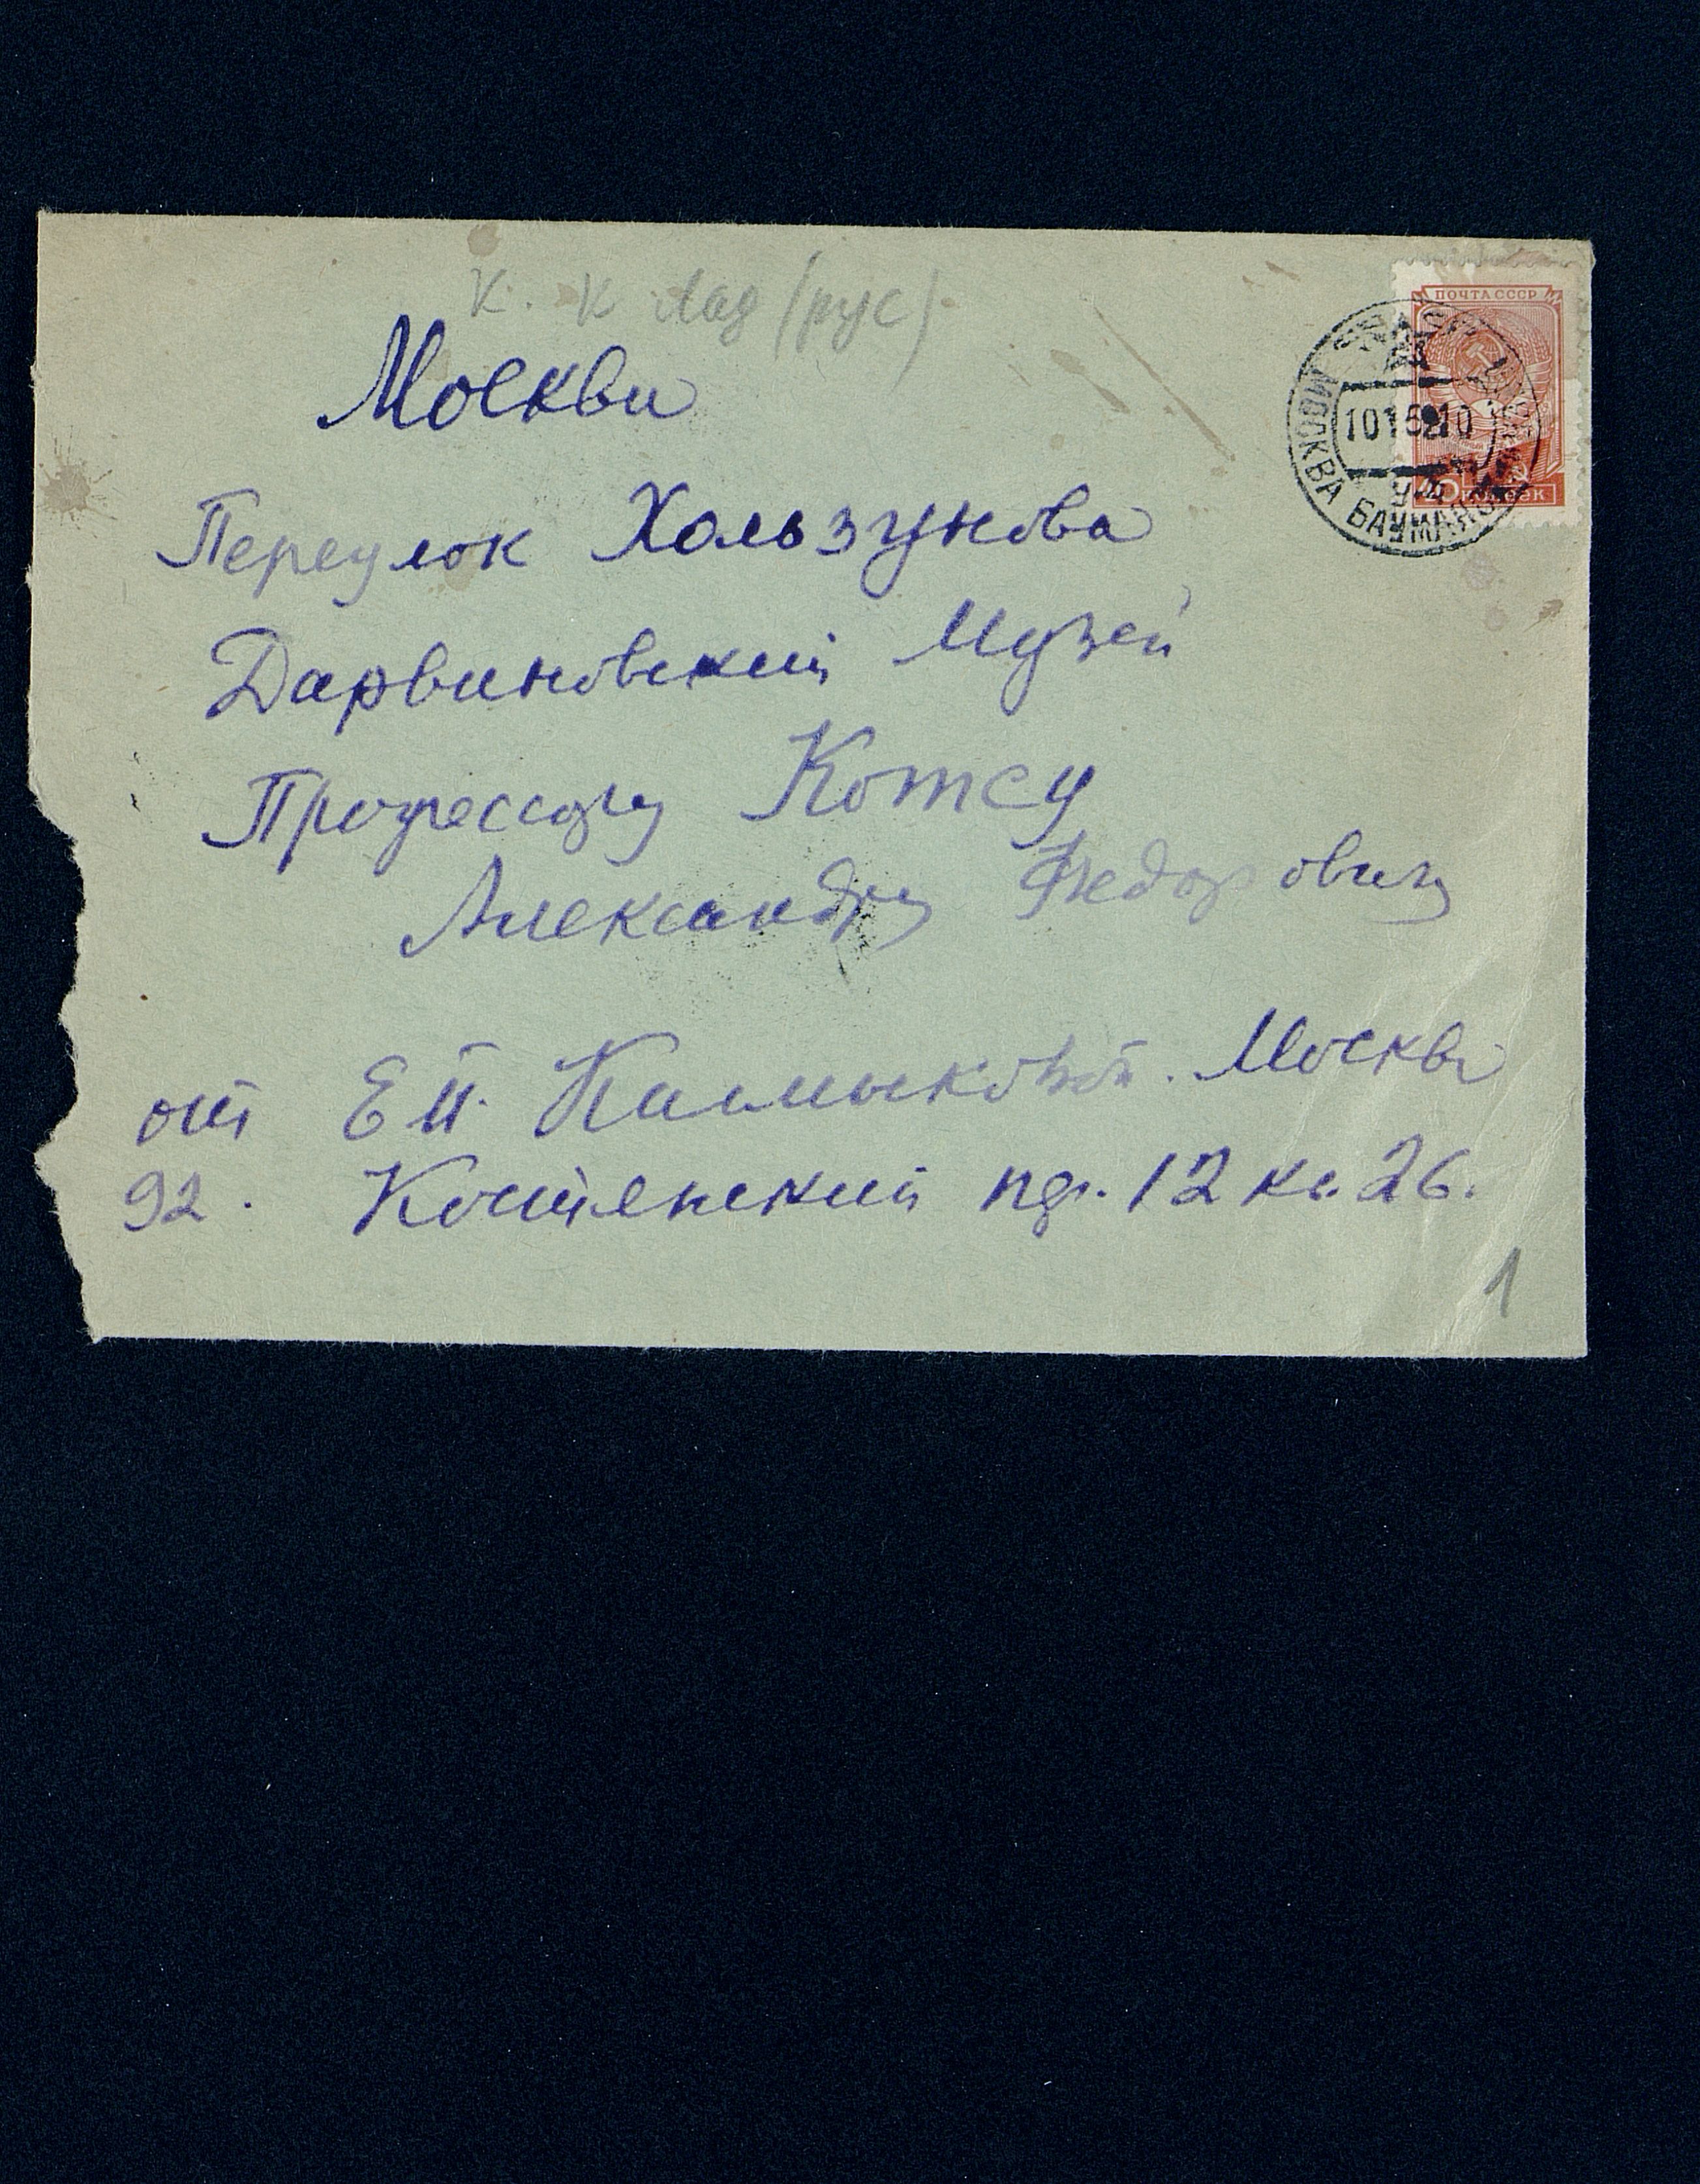 К. К Лад (рус)
Москва
Переулок Хользунова
Дарвиновский Музей
Профессору Котсу
Александру Федоровичу
от Е П. Калмыковой. Москва
92. Костянский пер. 12 кв. 26.
1
ПОЧТА СССР
40 КОПЕЕК
МОСКВА БАУМАНСК